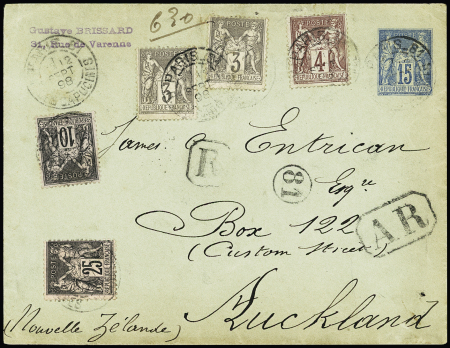 Gustave BRISSARD
31, Rue de Varenne
630
POSTE
3
POSTE
3
POSTE
4
POSTE
15
10
25
R
81
AR
James Entrican
Esqre
Box 122
(Custom Street)
Auckland
(Nouvelle Zélande)